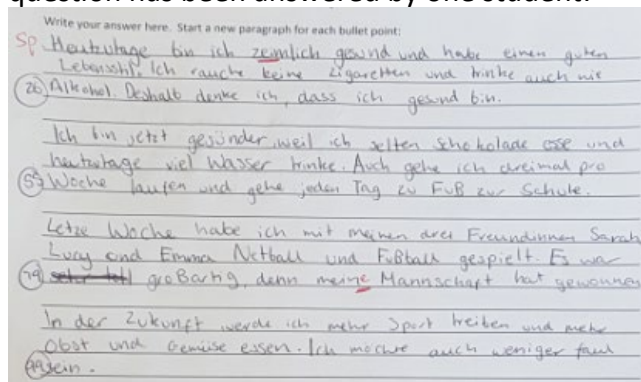 question has been answered by one student.
Write your answer here. Start a new paragraph for each bullet point:
Sp Heutzutage bin ich zeimlich gesund und habe einen guten
Lebensstil. Ich rauche keine Zigaretten und trinke auch nie
26 Alkohol. Deshalb denke ich, dass ich gesund bin.
Ich bin jetzt gesünder, weil ich selten Schokolade esse und
heutzutage viel Wasser trinke. Auch gehe ich dreimal pro
Woche laufen und gehe jeden Tag zu Fuß zur Schule.
Letze Woche habe ich mit meinen drei Freundinnen Sarah
Lucy and Emma Netball und Fußball gespielt. Es war
79 großartig, denn meine Mannschaft hat gewonnen
In der Zukunft werde ich mehr Sport treiben und mehr
Obst und Gemüse essen. Ich möchte auch weniger faul
99 sein.